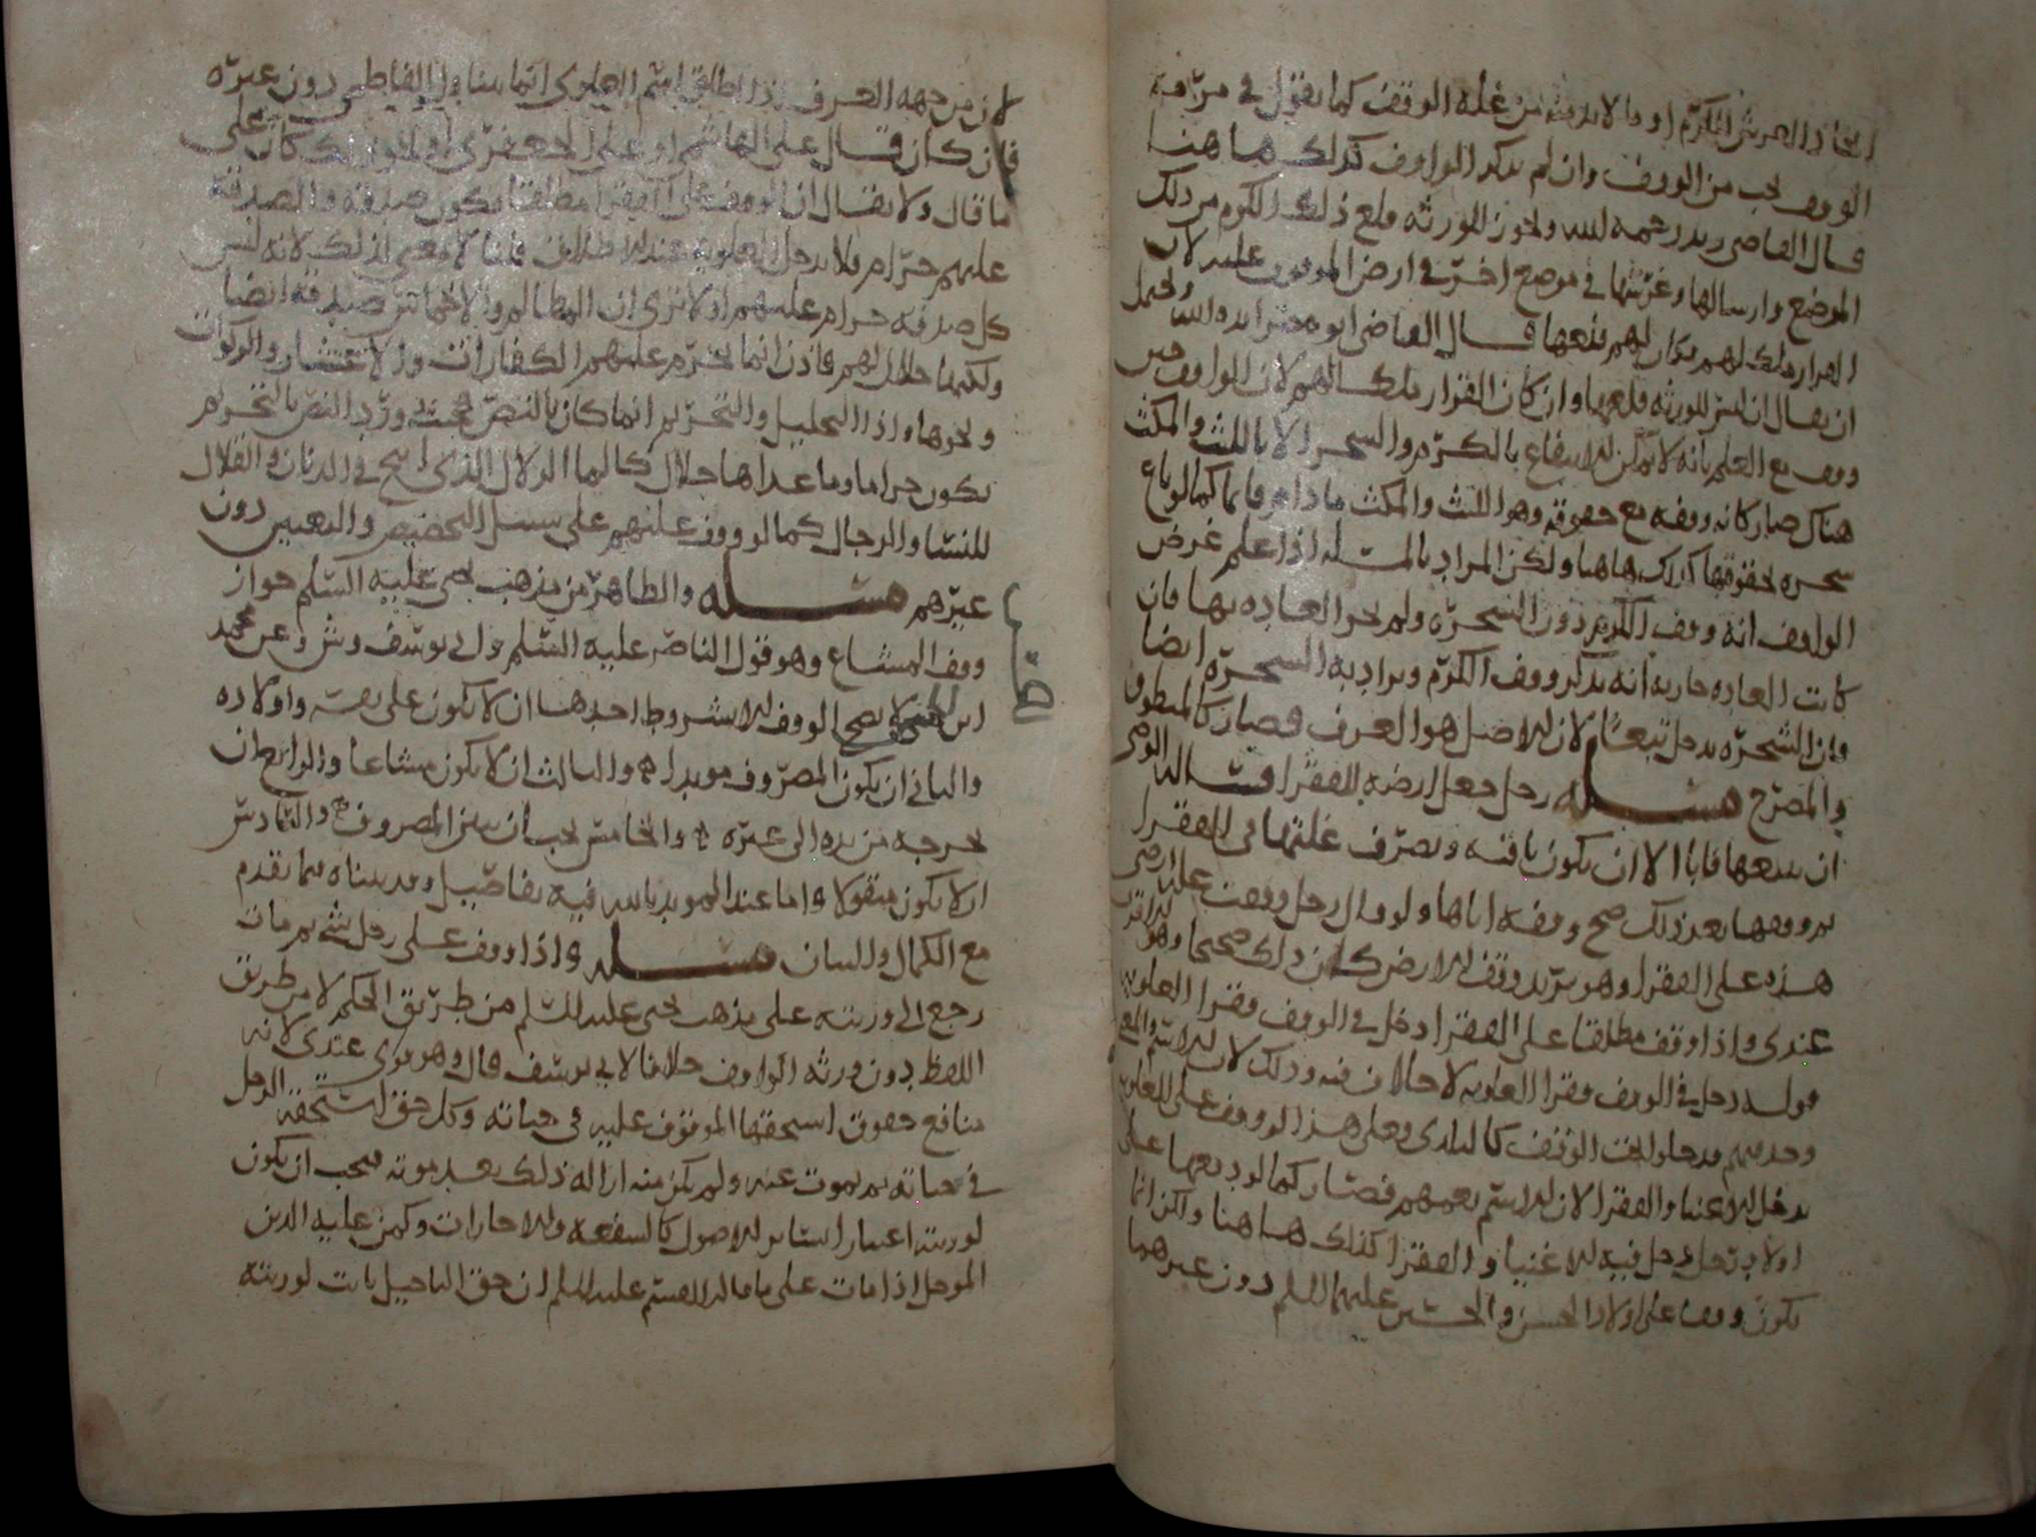 اتخاذ العرش للكرم او ما لا بد منه من غلة الوقف كما نقول في مرمة
الوقف يجب من الوقف وان لم يذكر الواقف كذلك هاهنا
قال القاضي زيد رحمه الله ويجوز للورثة قلع ذلك الكرم من ذلك
الموضع وارسالها وغرسها في موضع اخر في ارض الموقوف عليه لان
القرار ملك لهم فكان لهم بيعها قال القاضي ابو مضر ايده الله ويحتمل
ان يقال ان ليس للورثة قلعها وان كان القرار ملكا لهم لان الواقف حين
وقف مع العلم بانه لا يمكن الانتفاع بالكرم والشجر الا باللبث والمكث
هناك صار كانه وقفه مع حقوقه وهو اللبث والمكث ما دام قائما كما لو باع
شجره بحقوقها كذلك هاهنا ولكن المراد بالمسئلة اذا علم غرض
الواقف انه وقف الكرم دون الشجرة ولم تجر العادة بها فان
كانت العادة جارية انه يذكر وقف الكرم ويراد به الشجرة ايضا
وان الشجرة يدخل تبعا لان الاصل هو العرف فصار كالمنطوق
والمصرح مسئلة رجل جعل ارضه للفقرا فساله الوصي
ان يبيعها فابا الا ان يكون باقية ويصرف غلتها الى الفقرا
ثم وقفها بعد ذلك صح وقفه اياها ولو قال رجل وقفت غلة ارضي
هذه على الفقرا وهو يريد وقف الارض كان ذلك صحيحا وهو الاقرب
عندي واذا وقف مطلقا على الفقرا دخل في الوقف فقرا العلوية
مسئلة دخل في الوقف فقرا العلوية لا خلاف فيه وذلك لان الاسم والمعنى
وجد فيهم فدخلوا تحت الوقف كالبلدي وعلى هذا لو وقف على العلوية
يدخل الاغنيا والفقرا لان الاسم يعمهم فصار كما لو دفعها على
اولاد رجل يدخل فيه الاغنيا والفقرا كذلك هاهنا ولكن انما
يكون وقفا على اولاد الحسن والحسين عليهما السلم دون غيرهما
لان من جهة العرف اذا اطلق اسم العلوي انما يتناول الفاطمي دون غيره
فان كان قال على الهاشمي او على الجعفري او نحو ذلك كان على
ما قال ولا يقال ان الوقف على الفقرا مطلقا يكون صدقة والصدقة
عليهم حرام فلا يدخل العلوية عند الاطلاق قلنا لا معنى لذلك لانه ليس
كل صدقة حرام عليهم اولا ترى ان المظالم والاخماس صدقة ايضا
ولكنها حلال لهم فاذن انما يحرم عليهم الكفارات والاعشار والزكوات
ونحوها واذا التحليل والتحريم انما كان بالنص فحيث ورد النص بالتحريم
يكون حراما وما عداها حلال كالما الزلال الذي ابيح في الدنان والقلال
للنسا والرجال كما لو وقف عليهم على سبيل التخصيص والتعيين دون
غيرهم مسئلة والظاهر من مذهب يحيى عليه السلم جواز
وقف المشاع وهو قول الناصر عليه السلم وابي يوسف وش وعن محمد
ابن الحسن لا يصح الوقف الا بشروط احدها ان لا يكون على نفسه واولاده
والثاني ان يكون المصروف مويدا والثالث ان لا يكون مشاعا والرابع ان
يخرجه من يده الى غيره والخامس يجب ان يبين المصروف والسادس
ان لا يكون منقولا واما عند المويد بالله فيه تفاصيل وقد بيناه فيما تقدم
مع الكمال والبيان مسئلة واذا وقف على رجل شي ثم مات
رجع الى ورثته على مذهب يحيى عليه السلم من طريق الحكم لا من طريق
اللفظ دون ورثة الواقف خلافا لابي يوسف قال وهو قوي عندي لانه
منافع حقوق استحقها الموقوف عليه في حياته وكل حق استحقه الرجل
في حياته ثم يموت عنه ولم يكن منه ازالة ذلك بعد موته فيجب ان يكون
لورثته اعتبارا بسائر الاصول كالشفعة والاجارات وكمن عليه الدين
الموجل اذا مات على ما قال القسم عليه السلم ان حق التاجيل ثابت لورثته